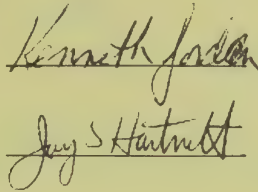 Kenneth Jordan
Jay S Hartnett